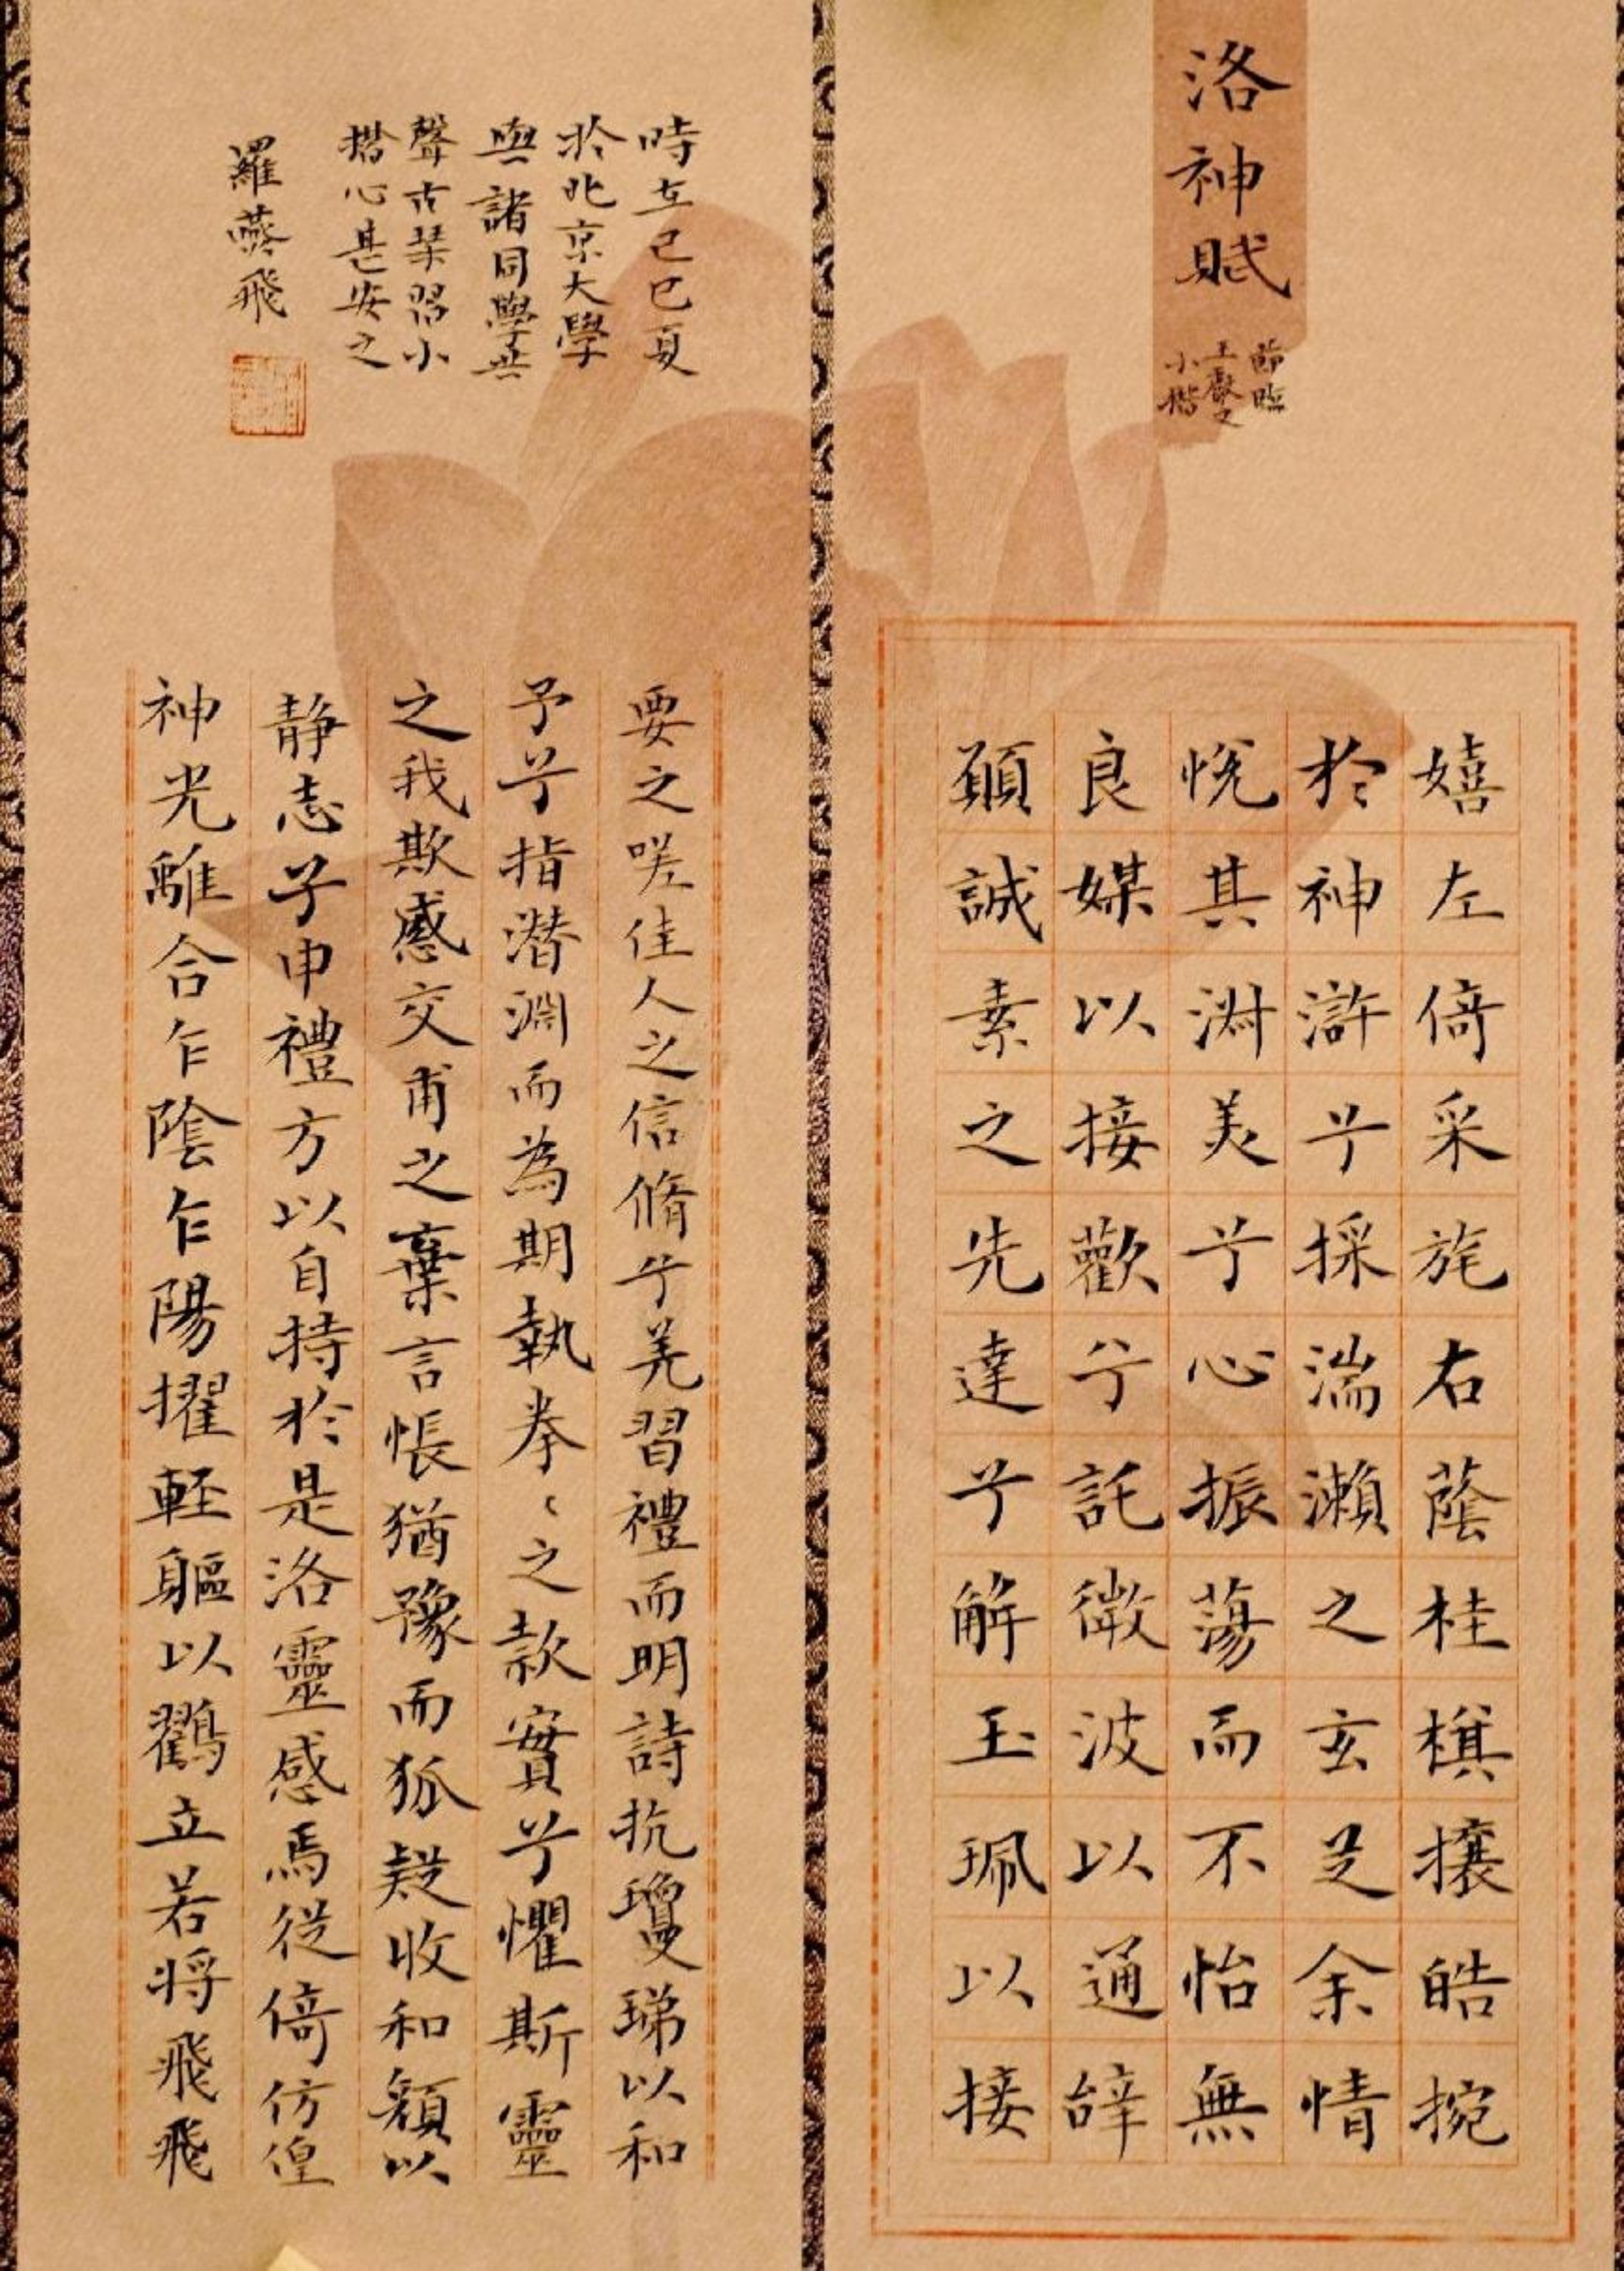 洛神賦
節臨
王獻之
小楷
嬉左倚采旄右蔭桂棋攘皓捥
於神滸兮採湍瀬之玄芝余情
悦其淋美兮心振蕩而不怡無
良媒以接歡兮託微波以通辝
願誠素之先達兮解玉珮以接
要之嗟佳人之信脩兮羌習禮而明詩抗瓊珶以和
予兮指潜淵而為期執拳〻之款實兮懼斯靈
之我欺感交甫之棄言悵猶豫而狐疑收和顏以
静志兮申禮方以自持於是洛靈感焉徙倚仿偟
神光離合乍陰乍陽擢軽軀以鸛立若将飛飛
時在己巳夏
於北京大學
與諸同學共
聲古琹習小
揩心甚安之
羅燕飛